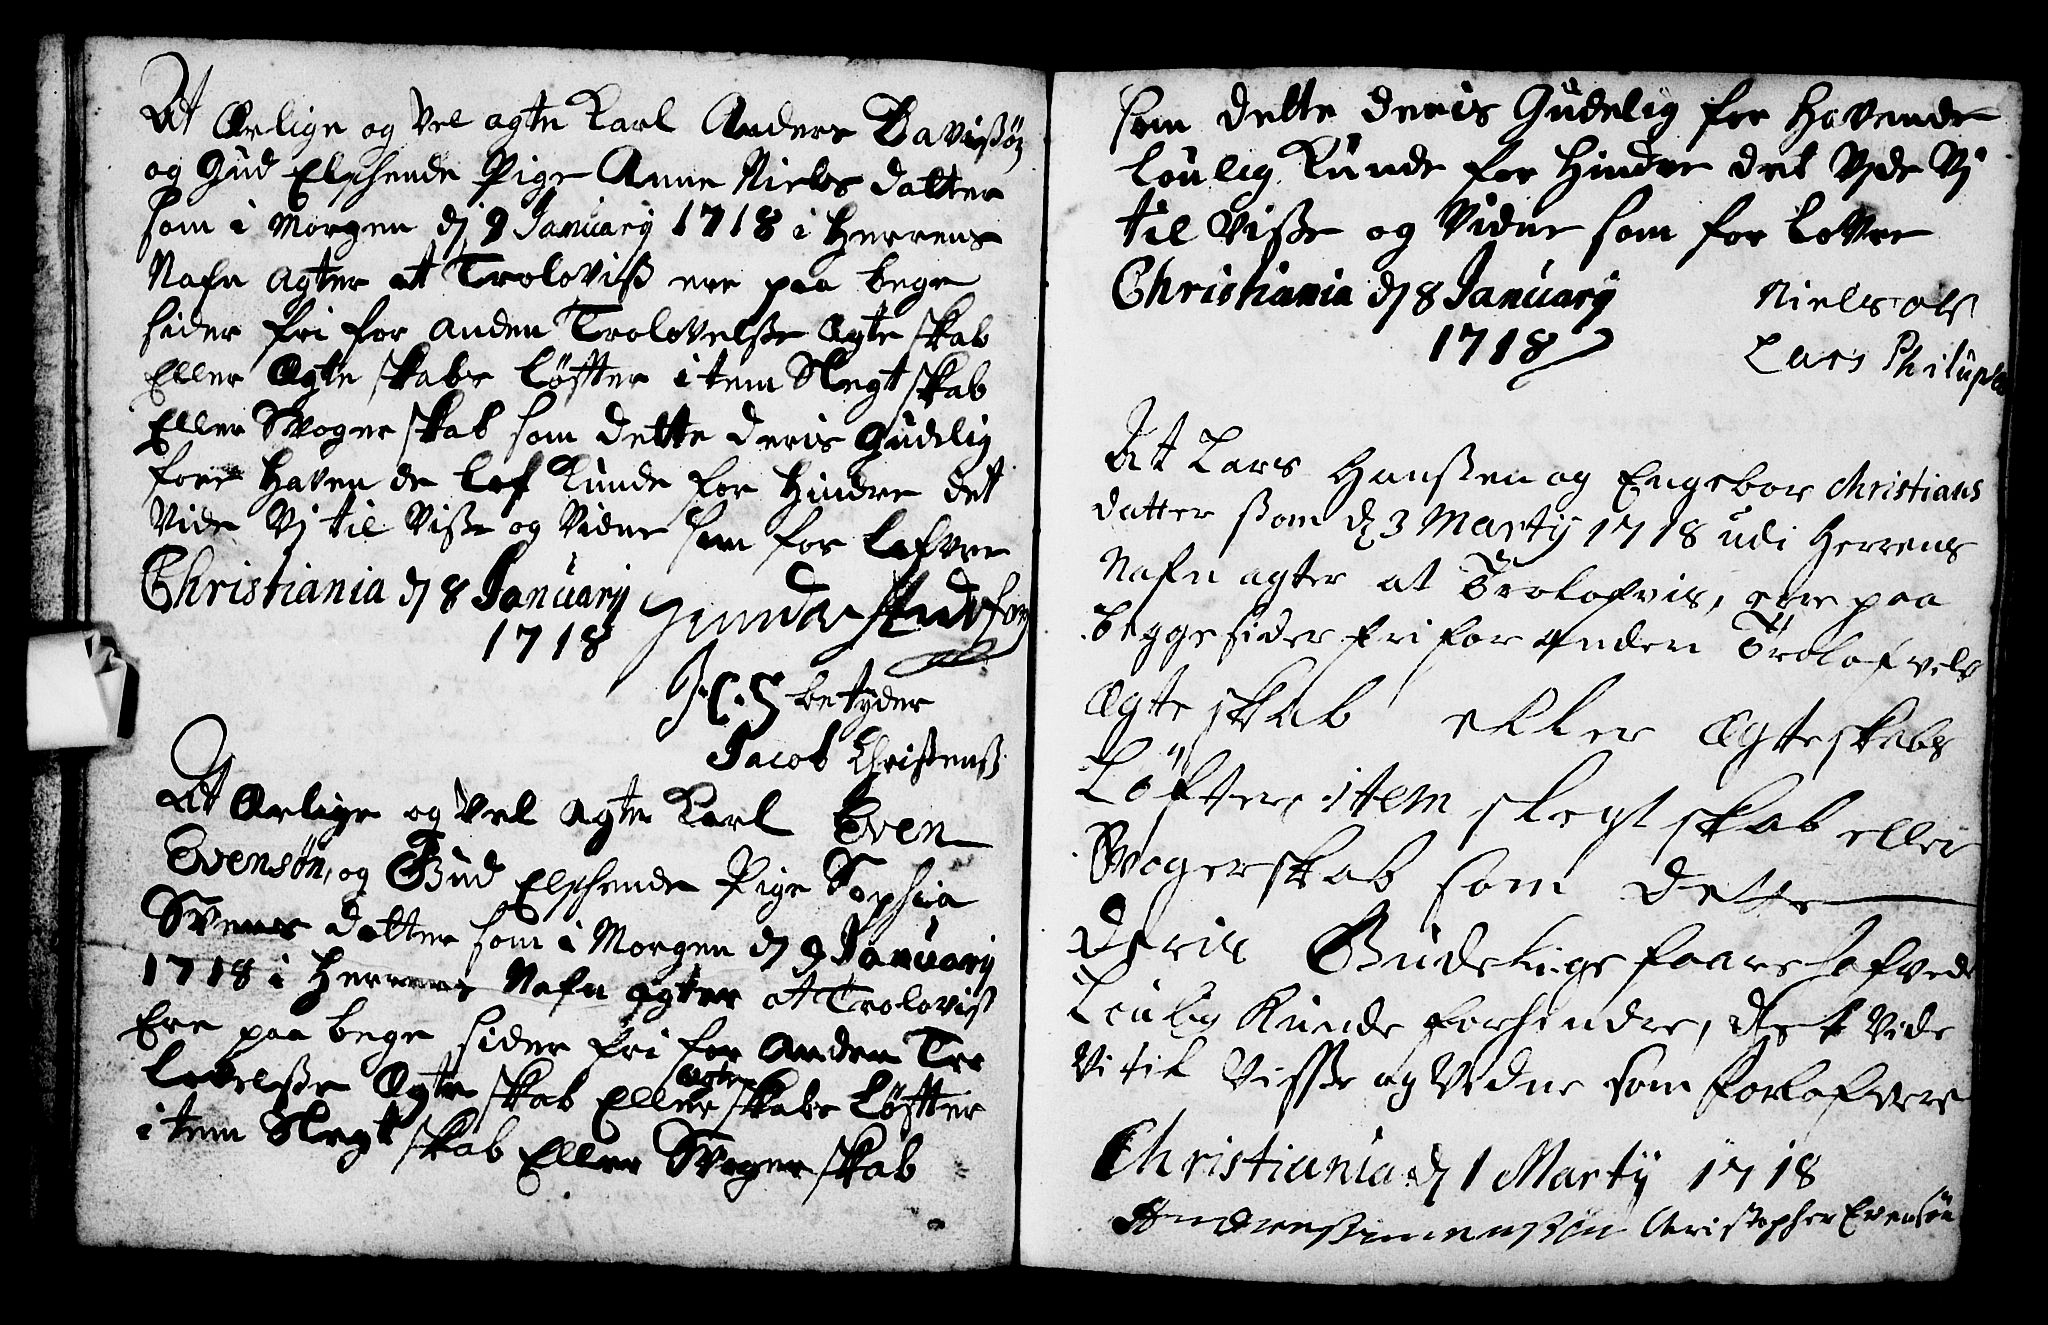 At Ærlige og Vel agte Karl Anders Davißøn
og Gud Elschende Pige Anne Niels datter
som i Morgen dj 9 January 1718 i Herrens
Nafn agter at Troloviß ere paa bege
sider fri for anden Trolovelse Ægte skab
Eller Ægte skabs Løffter item Slegt skab
Eller Svoger skab som dette deris Gudelig
fore Haven de lof Kunde for Hindre det
Vide Vj til Viße og Vidne som for lofver
Christiania dj 8 January
1718
J.C.S betyder
Jacob Christenß
At Ærlige og Vel agte Karl Even
Evensøn, og Gud Elschende Pige Sophia
Svens datter som i Morgen dj 9 January
1718 i Herrens Nafn agter at Troloviß
Ere paa bege sider fri for anden Tro
lovelße Ægte skab Eller Ægte skabs Løffter
item Slegt skab Eller Svoger skab
som dette deris Gudelig for Havende
Loulig Kunde for Hindre det Vide Vj
til Viße og Vidne som for Lover
Christiania dj 8 January Niels Olß
1718 Lars Philups
At Lars Hanßen og Engebor Christians
datter ßom dj 3 Martij 1718 udi Herrens
Nafn agter at Trolofvis, ere paa
Begge sider fri for anden Trolofvels
Ægte skab eller Ægteskabs
Løfter, item slegt skab eller
Svogerskab som dette
deris Gudelige faarehafvede
Loulig Kunde forhindre, det Vide
Vi til Visße og Vidne som forlofvere
Christiania dj 1 Martij 1718
Andres Simenßøn Christopher Evensøn